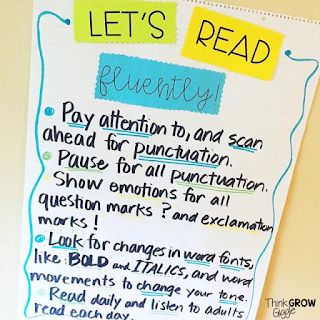 LET'S READ
fluently!
• Pay attention to, and scan
ahead for punctuation.
• Pause for all punctuation.
• Show emotions for all
question marks ? and exclamation
marks !
• Look for changes in word fonts,
like: BOLD and ITALICS, and word
movements to change your tone.
• Read daily and listen to adults
read each day.
Think GROW
Giggle